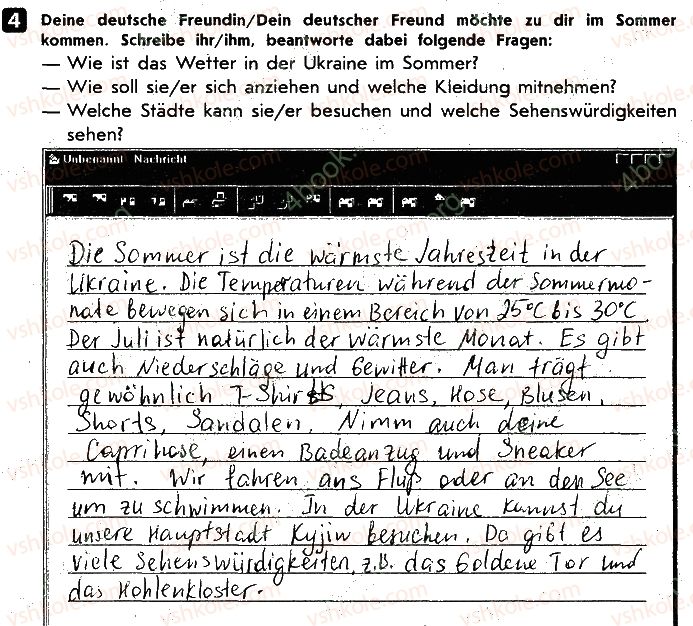 4 Deine deutsche Freundin/Dein deutscher Freund möchte zu dir im Sommer
kommen. Schreibe ihr/ihm, beantworte dabei folgende Fragen:
— Wie ist das Wetter in der Ukraine im Sommer?
— Wie soll sie/er sich anziehen und welche Kleidung mitnehmen?
— Welche Städte kann sie/er besuchen und welche Sehenswürdigkeiten
sehen?
Unbenannt Nachricht
Die Sommer ist die wärmste Jahreszeit in der
Ukraine. Die Temperaturen während der Sommermo-
nate bewegen sich in einem Bereich von 25°C bis 30°C
Der Juli ist natürlich der wärmste Monat. Es gibt
auch Niederschläge und Gewitter. Man trägt
gewöhnlich T-Shirts, Jeans, Hose, Blusen,
Shorts, Sandalen, Nimm auch deine
Caprihose, einen Badeanzug und Sneaker
mit. Wir fahren ans Fluß oder an den See
um zu schwimmen. In der Ukraine kannst du
unsere Hauptstadt Kyjiw besuchen. Da gibt es
viele Sehenswürdigkeiten, z.B. das Goldene Tor und
das Hohlenkloster.
vshkole.com
4book.org